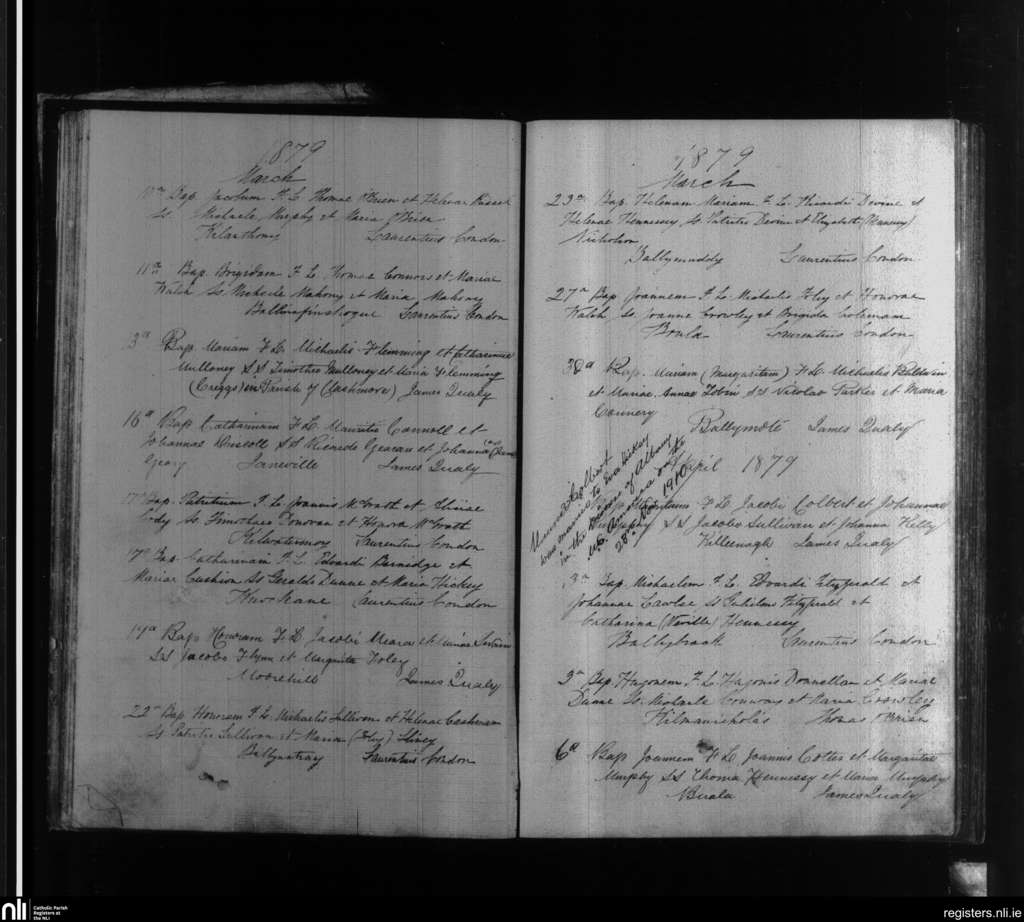 1879
March
Bap. Jacobum F. L. Thomae O'Brien et Helenae
Ss. Michaele Murphy et Maria O'Brien
Laurentius Condon
11a Bap. Brigidam F. L. Thomae Connors et Mariae
Walsh Ss. Michaele Mahony et Maria Mahony
Laurentius Condon
Bap. Mariam F. L. Michaelis Flemming et Catharinae
Mulloney S.S Timotheo Mulloney et Maria Flemming
(Creggs) in Parish of (Clashmore) James Qualy
16a Bap Catharinam F L. Mauritii Connell et
Johannae Driscoll S.S Ricardo Geacan et Johanna
Geary Janeville James Qualy
17a Bap. Patritium F. L. Joannis McGrath et
Ss Timotheo Donovan et Honora McGrath
Kilwatermoy Laurentius Condon
17a Bap. Catharinam F. L. Edvardi et
Mariae Cushion Ss Geraldo Dunne et Maria Hickey
Laurentius Condon
19a Bap Honoram F. L Jacobi Meara et
S.S Jacobo Flynn et Margarita Foley
Moorehill James Qualy
22a Bap Honoram F. L. Michaelis Sullivan et Helenae Cashman
Ss Patritio Sullivan et Maria (Foley)
Ballynatray Laurentius Condon
1879
March
23a Bap. Helenam Mariam F. L. Ricardi Devine et
Helenae Hennessy Ss Patritio Devine et Elizabeth
Nicholson
Laurentius Condon
27a Bap Joannem F. L. Michaelis Foley et Honorae
Walsh Ss Joanne Crowley et Brigida Coleman
Laurentius Condon
30a Bap. Mariam (Margaritam) F. L. Michaelis Baldwin
et Mariae Annae Tobin S.S Nicolao Parker et Maria
Connery
Ballymote James Qualy
April 1879
Bap F L. Jacobi Colbert et Johannae
Murphy S.S Jacobo Sullivan et Johanna Kelly
Killeenagh James Qualy
Colbert
was married to Eva Hickey
in the Diocese of Albury
on the
28th 1910
3a Bap. Michaelem F. L. Edvardi Fitzgerald et
Johannae Lawlor Ss Fitzgerald et
Catharina (Neville) Hennessy
Laurentius Condon
3a Bap. Hugonem F. L. Hugonis Donnellan et Mariae
Dunne Ss. Michaele Conway et Maria Crowley
Kilmanicholas Thomas O'Brien
6a Bap Joannem F. L. Joannis Cotter et Margaritae
Murphy S.S Thoma Hennessy et Maria Murphy
James Qualy
nli
Catholic Parish
Registers at
the NLI
registers.nli.ie